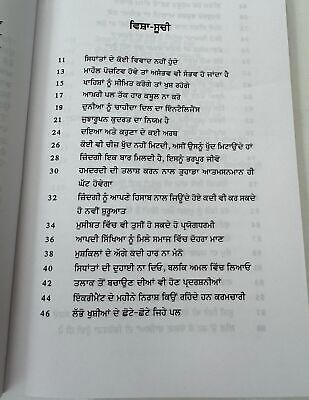 ਵਿਸ਼ਾ-ਸੂਚੀ
11 ਸਿਧਾਂਤਾਂ ਦੇ ਕੋਈ ਵਿਵਾਦ ਨਹੀਂ ਹੁੰਦੇ
13 ਮਾਹੌਲ ਪੌਜ਼ਟਿਵ ਹੋਵੇ ਤਾਂ ਅਸੰਭਵ ਵੀ ਸੰਭਵ ਹੋ ਜਾਂਦਾ ਹੈ
15 ਖਾਹਿਸ਼ਾਂ ਨੂੰ ਸੀਮਿਤ ਕਰੋਗੇ ਤਾਂ ਖੁਸ਼ ਰਹੋਗੇ
17 ਆਖ਼ਰੀ ਪਲ ਤੱਕ ਹਾਰ ਕਬੂਲ ਨਾ ਕਰੋ
19 ਦੁਨੀਆ ਨੂੰ ਚਾਹੀਦਾ ਦਿਲ ਦਾ ਇਨਟੈਲਿਜੈਂਸ
21 ਜੁਝਾਰੂਪਨ ਕੁਦਰਤ ਦਾ ਨਿਯਮ ਹੈ
24 ਦਇਆ ਅਤੇ ਕਰੁਣਾ ਦੇ ਕਈ ਅਰਥ
26 ਕੋਈ ਵੀ ਚੀਜ਼ ਖ਼ੁਦ ਨਹੀਂ ਮਿਟਦੀ, ਅਸੀਂ ਉਸਨੂੰ ਖ਼ੁਦ ਮਿਟਾਉਂਦੇ ਹਾਂ
28 ਜ਼ਿੰਦਗੀ ਇਕ ਬਾਰ ਮਿਲਦੀ ਹੈ, ਇਸਨੂੰ ਭਰਪੂਰ ਜੀਵੋ
30 ਹਮਦਰਦੀ ਦੀ ਤਲਾਸ਼ ਕਰਨ ਨਾਲ ਤੁਹਾਡਾ ਆਤਮਸਨਮਾਨ ਹੀ
ਘੱਟ ਹੋਵੇਗਾ
32 ਜ਼ਿੰਦਗੀ ਨੂੰ ਆਪਣੇ ਹਿਸਾਬ ਨਾਲ ਜਿਉਂਦੇ ਹੋਏ ਕਦੀ ਵੀ ਕਰ ਸਕਦੇ
ਹੋ ਨਵੀਂ ਸ਼ੁਰੂਆਤ
34 ਮੁਸੀਬਤ ਵਿੱਚ ਵੀ ਤੁਸੀਂ ਹੋ ਸਕਦੇ ਹੋ ਪ੍ਰਯੋਗਧਰਮੀ
36 ਆਪਦੀ ਸਿੱਖਿਆ ਨੂੰ ਮਿਲੇ ਸਮਾਜ ਵਿੱਚ ਦੋਹਰਾ ਮਾਣ
38 ਮੁਸ਼ਕਿਲਾਂ ਦੇ ਅੱਗੇ ਕਦੀ ਹਾਰ ਨਾ ਮੰਨੋ
40 ਸਿਧਾਂਤਾਂ ਦੀ ਦੁਹਾਈ ਨਾ ਦਿਓ, ਬਲਕਿ ਅਮਲ ਵਿੱਚ ਲਿਆਓ
42 ਤਲਾਕ ਤੋਂ ਬਚਾਉਣ ਦੀਆਂ ਵੀ ਹੋਣ ਪ੍ਰਦਰਸ਼ਨੀਆਂ
44 ਇੰਕਰੀਮੈਂਟ ਦੇ ਮਹੀਨੇ ਨਿਰਾਸ਼ ਕਿਉਂ ਰਹਿੰਦੇ ਹਨ ਕਰਮਚਾਰੀ
46 ਲੱਭੋ ਖੁਸ਼ੀਆਂ ਦੇ ਛੋਟੇ-ਛੋਟੇ ਜਿਹੇ ਪਲ